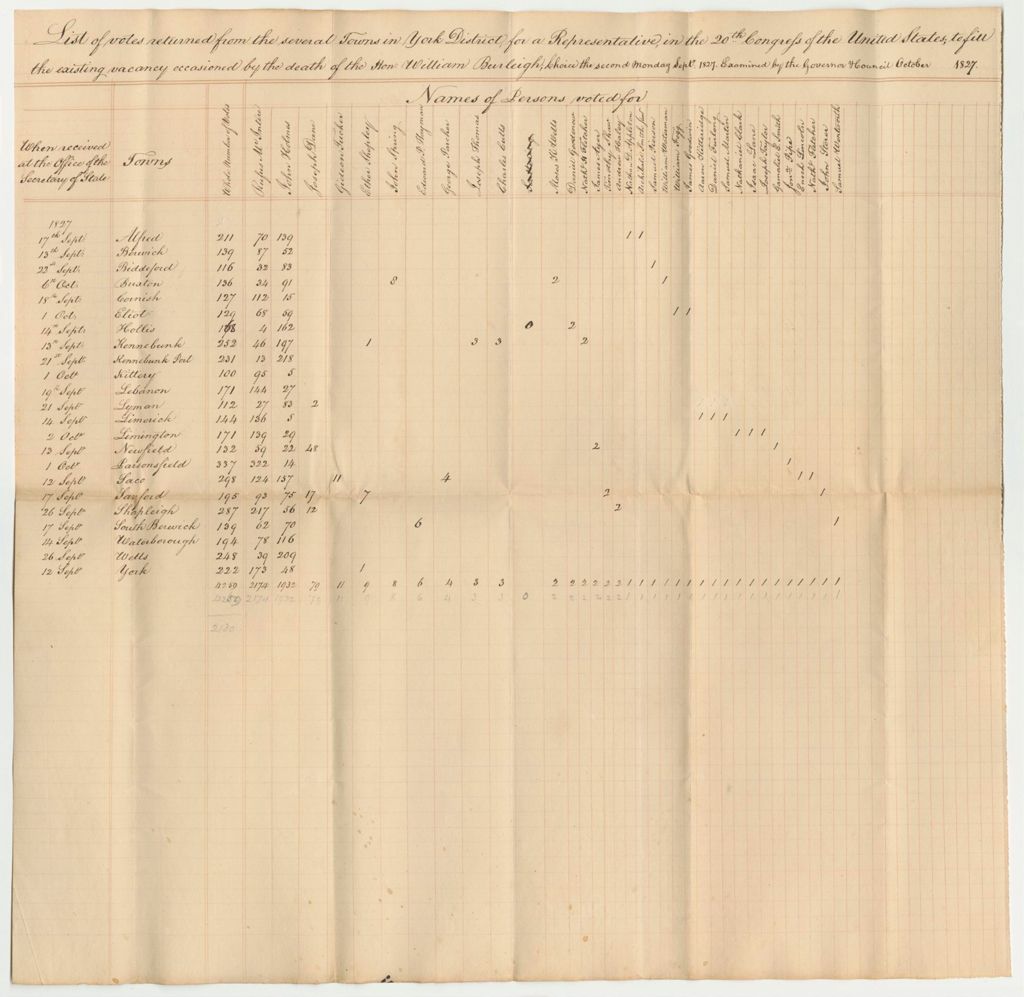 List of votes returned from the several Towns in York District, for a Representative, in the 20th Congress of the United States, to fill
the existing vacancy occasioned by the death of the Hon William Burleigh, choice the second Monday Sept. 1827. Examined by the Governor & Council October 1827.
Names of Persons voted for
When received at the Office of the Secretary of State
Towns
Whole Number of Votes
Rufus McIntire
John Holmes
Joseph Dane
Gideon Tucker
Ether Shepley
John Spring
Edward P. Hayman
George Parcher
Joseph Thomas
Charles Cutts
Moses H. Wells
Daniel Goodenow
Samuel Ayer
Nathan D. Appleton
William Fogg
James Goodwin
Nathaniel Clark
Joseph Taylor
Gamaliel E. Smith
Samuel Wentworth
1827
17th Sept. Alfred 211 70 139 1 1
13th Sept. Berwick 139 87 52
22d Sept. Biddeford 116 32 83 1
6th Oct. Buxton 136 34 91 8 2 1
18th Sept. Cornish 127 112 15
1 Oct. Eliot 129 68 59 1 1
14th Sept. Hollis 168 4 162 0 2
13th Sept. Kennebunk 252 46 197 1 3 3 2
21st Sept. Kennebunk Port 231 13 218
1 Oct. Kittery 100 95 5
19th Sept. Lebanon 171 144 27
21 Sept. Lyman 112 27 83 2
14 Sept. Limerick 144 136 5 1 1 1
2 Oct. Limington 171 139 29 1 1 1
13 Sept. Newfield 132 59 22 48 2 1
1 Oct. Parsonsfield 337 322 14 1
12 Sept. Saco 298 124 157 11 4 1 1
17 Sept. Sanford 195 93 75 17 7 2 1
26 Sept. Shapleigh 287 217 56 12 2
17 Sept. South Berwick 139 62 70 6 1
14 Sept. Waterborough 194 78 116
26 Sept. Wells 248 39 209
12 Sept. York 222 173 48 1
4259 2174 1932 79 11 9 8 6 4 3 3 2 2 2 2 2 2 1 1 1 1 1 1 1 1 1 1 1 1 1 1 1 1 1 1 1
4259 2174 1932 79 11 9 8 6 4 3 3 0 2 2 2 2 2 2 1 1 1 1 1 1 1 1 1 1 1 1 1 1 1 1 1 1 1
2130